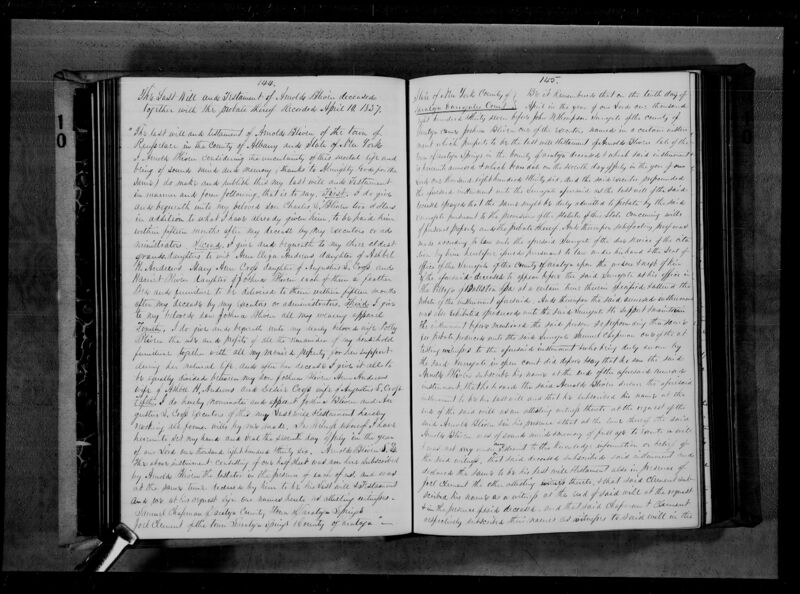 144.
The Last Will and Testament of Arnold Bliven deceased
together with the probate thereof Recorded April 10, 1837.
"The last will and testament of Arnold Bliven of the town of
in the County of Albany and State of New York
I Arnold Bliven considering the uncertainty of this mortal life and
being of sound mind and memory, thanks to Almighty God for the
same, I do make and publish this my last will and Testament
in manner and form following, that is to say, First, I do give
and bequeath unto my beloved son Charles Bliven two dollars
in addition to what I have already given him, to be paid him
within fifteen months after my decease by my Executors or ad
ministrators. Second, I give and bequeath to my three eldest
grand daughters to wit Ann Eliza Andrews daughter of
Andrews Mary Ann Cogs daughter of Augustus Cogs and
Harriet Bliven daughter of Joshua Bliven each of them a feather
to be delivered to them within fifteen months
after my decease by my executors or administrators, Third, I give
to my beloved son Joshua Bliven all my wearing apparel
I do give and bequeath unto my dearly beloved wife Polly
Bliven the use and profits of all the remainder of my household
furniture together with all my personal property for her support
during her natural life, and after her decease I give it all to
be equally divided between my son Joshua Bliven Ann Andrews
wife of Andrews and Cogs wife of Augustus Cogs
I do hereby nominate and appoint Joshua Bliven and Au
gustus Cogs executors of this my last will & testament hereby
revoking all former wills by me made. In witness whereof I have
hereunto set my hand and seal the seventh day of July in the year
of our Lord one thousand eight hundred thirty six. Arnold Bliven L.S.
The above instrument consisting of one half sheet was now here subscribed
by Arnold Bliven the testator in the presence of each of us, and was
at the same time declared by him to be his last will & testament
and we at his request sign our names hereto as attesting witnesses.
Samuel Chapman Saratoga County, Town of Saratoga Springs
Joel Clement of the town Saratoga Springs County of Saratoga"
145.
State of New York County of
Saratoga Surrogates Court
Be it remembered that on the tenth day of
April in the year of our Lord one thousand
eight hundred thirty seven before John W. Thompson Surrogate of the county of
Saratoga came Joshua Bliven one of the executors named in a certain instru
ment which purports to be the last will & testament of Arnold Bliven late of the
town of Saratoga Springs in the County of Saratoga deceased & which said instrument
is hereunto annexed & which bears date on the seventh day of July in the year of our
Lord one thousand eight hundred thirty six And the said executor presented
the aforesaid instrument unto the Surrogate aforesaid as the last will of the said
deceased & prayed that the same might be duly admitted to probate by the said
surrogate pursuant to the provisions of the Statute of this State concerning wills
of personal property and the probate thereof. And thereupon satisfactory proof was
made according to law unto the aforesaid Surrogate of the due service of the cita
tion by him heretofore issued pursuant to law under his hand & the Seal of
Office of the Surrogate of the county of Saratoga upon the widow & next of kin
of the aforesaid deceased to appear before the said Surrogate at his office in
the Village of Ballston Spa at a certain time therein specified to attend the
probate of the instrument aforesaid. And thereupon the said annexed instrument
was also exhibited & produced unto the said Surrogate & to support & maintain
the instrument before mentioned the said person so propounding the same
for probate produced unto the said Surrogate Samuel Chapman one of the at
testing witnesses to the aforesaid instrument who being duly sworn by
the said Surrogate in open court did depose & say that he saw the said
Arnold Bliven subscribe his name at the end of the aforesaid annexed
instrument that he heard the said Arnold Bliven declare the aforesaid
instrument to be his last will and that he subscribed his name at the
end of the said will as an attesting witness thereto at the request of the
said Arnold Bliven & in his presence & that at the time thereof the said
Arnold Bliven was of sound mind & memory of full age to execute a will
& was not any under restraint to the knowledge information or belief of
the said witness, that said deceased subscribed said instrument and
declared the same to be his last will & testament also in presence of
Joel Clement the other attesting witness thereto & that said Clement sub
scribed his name as a witness at the end of said will at the request
& in the presence of said deceased, and that said Chapman & Clement
respectively subscribed their names as witnesses to said will in the